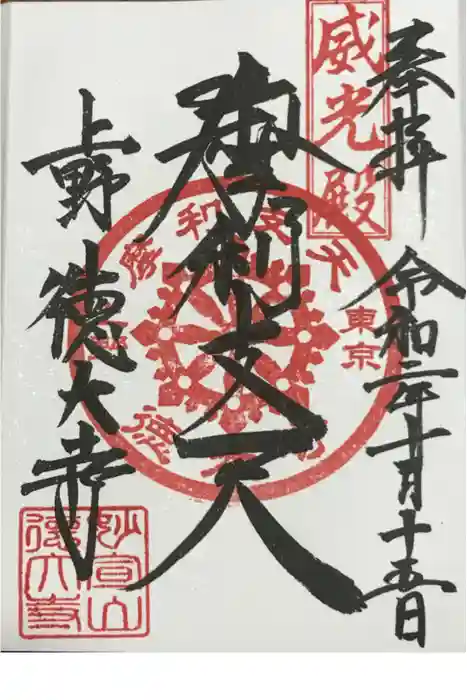 奉拝 令和二年十月十五日
威光殿
摩利支天
上野 徳大寺
東京
妙宣山
德大寺